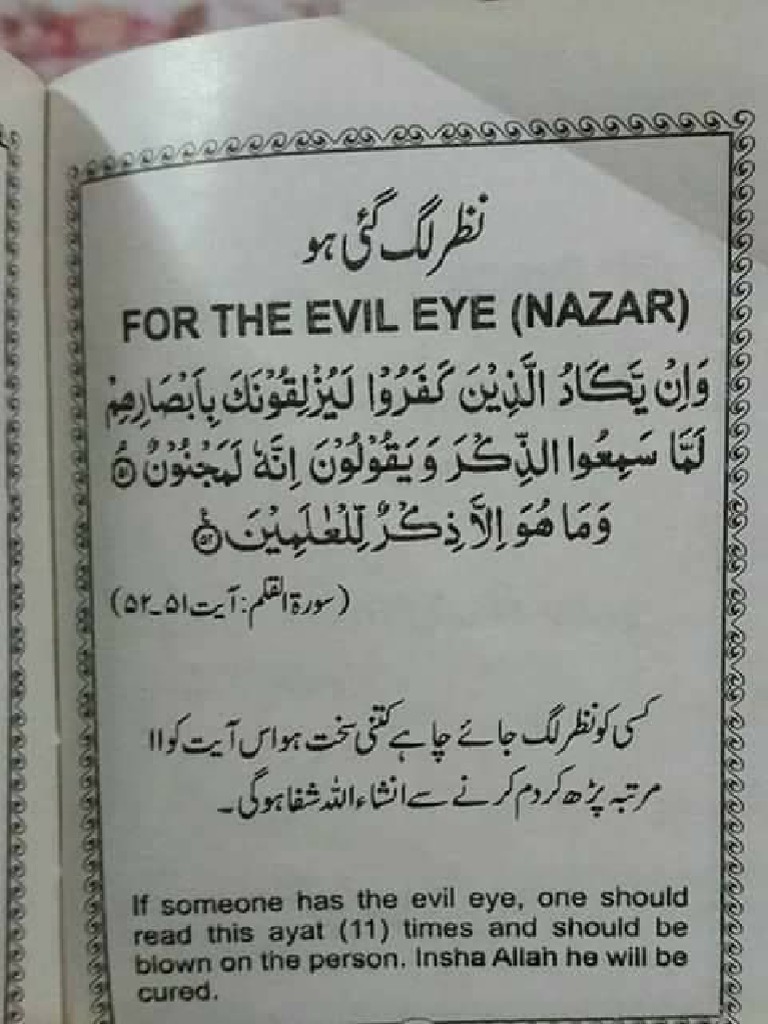 نظر لگ گئی ہو
FOR THE EVIL EYE (NAZAR)
وَاِنْ يَّكَادُ الَّذِيْنَ كَفَرُوْا لَيُزْلِقُوْنَكَ بِاَبْصَارِهِمْ
لَمَّا سَمِعُوا الذِّكْرَ وَيَقُوْلُوْنَ اِنَّهٗ لَمَجْنُوْنٌ ۘ ۵۱
وَمَا هُوَ اِلَّا ذِكْرٌ لِّلْعٰلَمِيْنَ ۵۲
(سورۃ القلم: آیت ۵۱۔۵۲)
کسی کو نظر لگ جائے چاہے کتنی سخت ہو اس آیت کو ۱۱
مرتبہ پڑھ کر دم کرنے سے انشاء اللہ شفا ہوگی۔
If someone has the evil eye, one should
read this ayat (11) times and should be
blown on the person. Insha Allah he will be
cured.